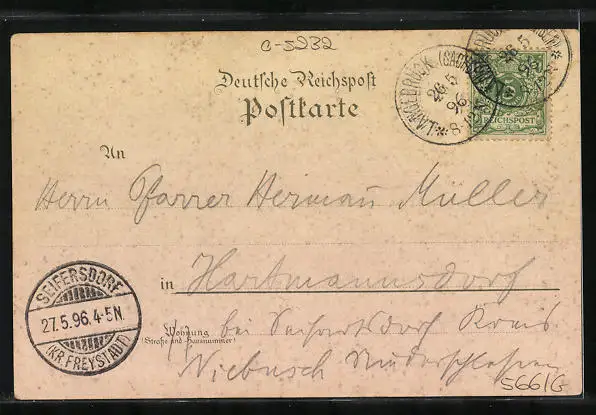 C-5232
Deutsche Reichspost
Postkarte
LANGEBRÜCK (SACHSEN)
26 5
96
8-12 V
REICHSPOST
An
Herrn Pfarrer Herman Müller
in Hartmannsdorf
SEIFERSDORF
27.5.96.4-5N.
(KR. FREYSTADT)
Wohnung
(Straße und Hausnummer)
bei Kreis
Niebusch Niederschlesien
5661G